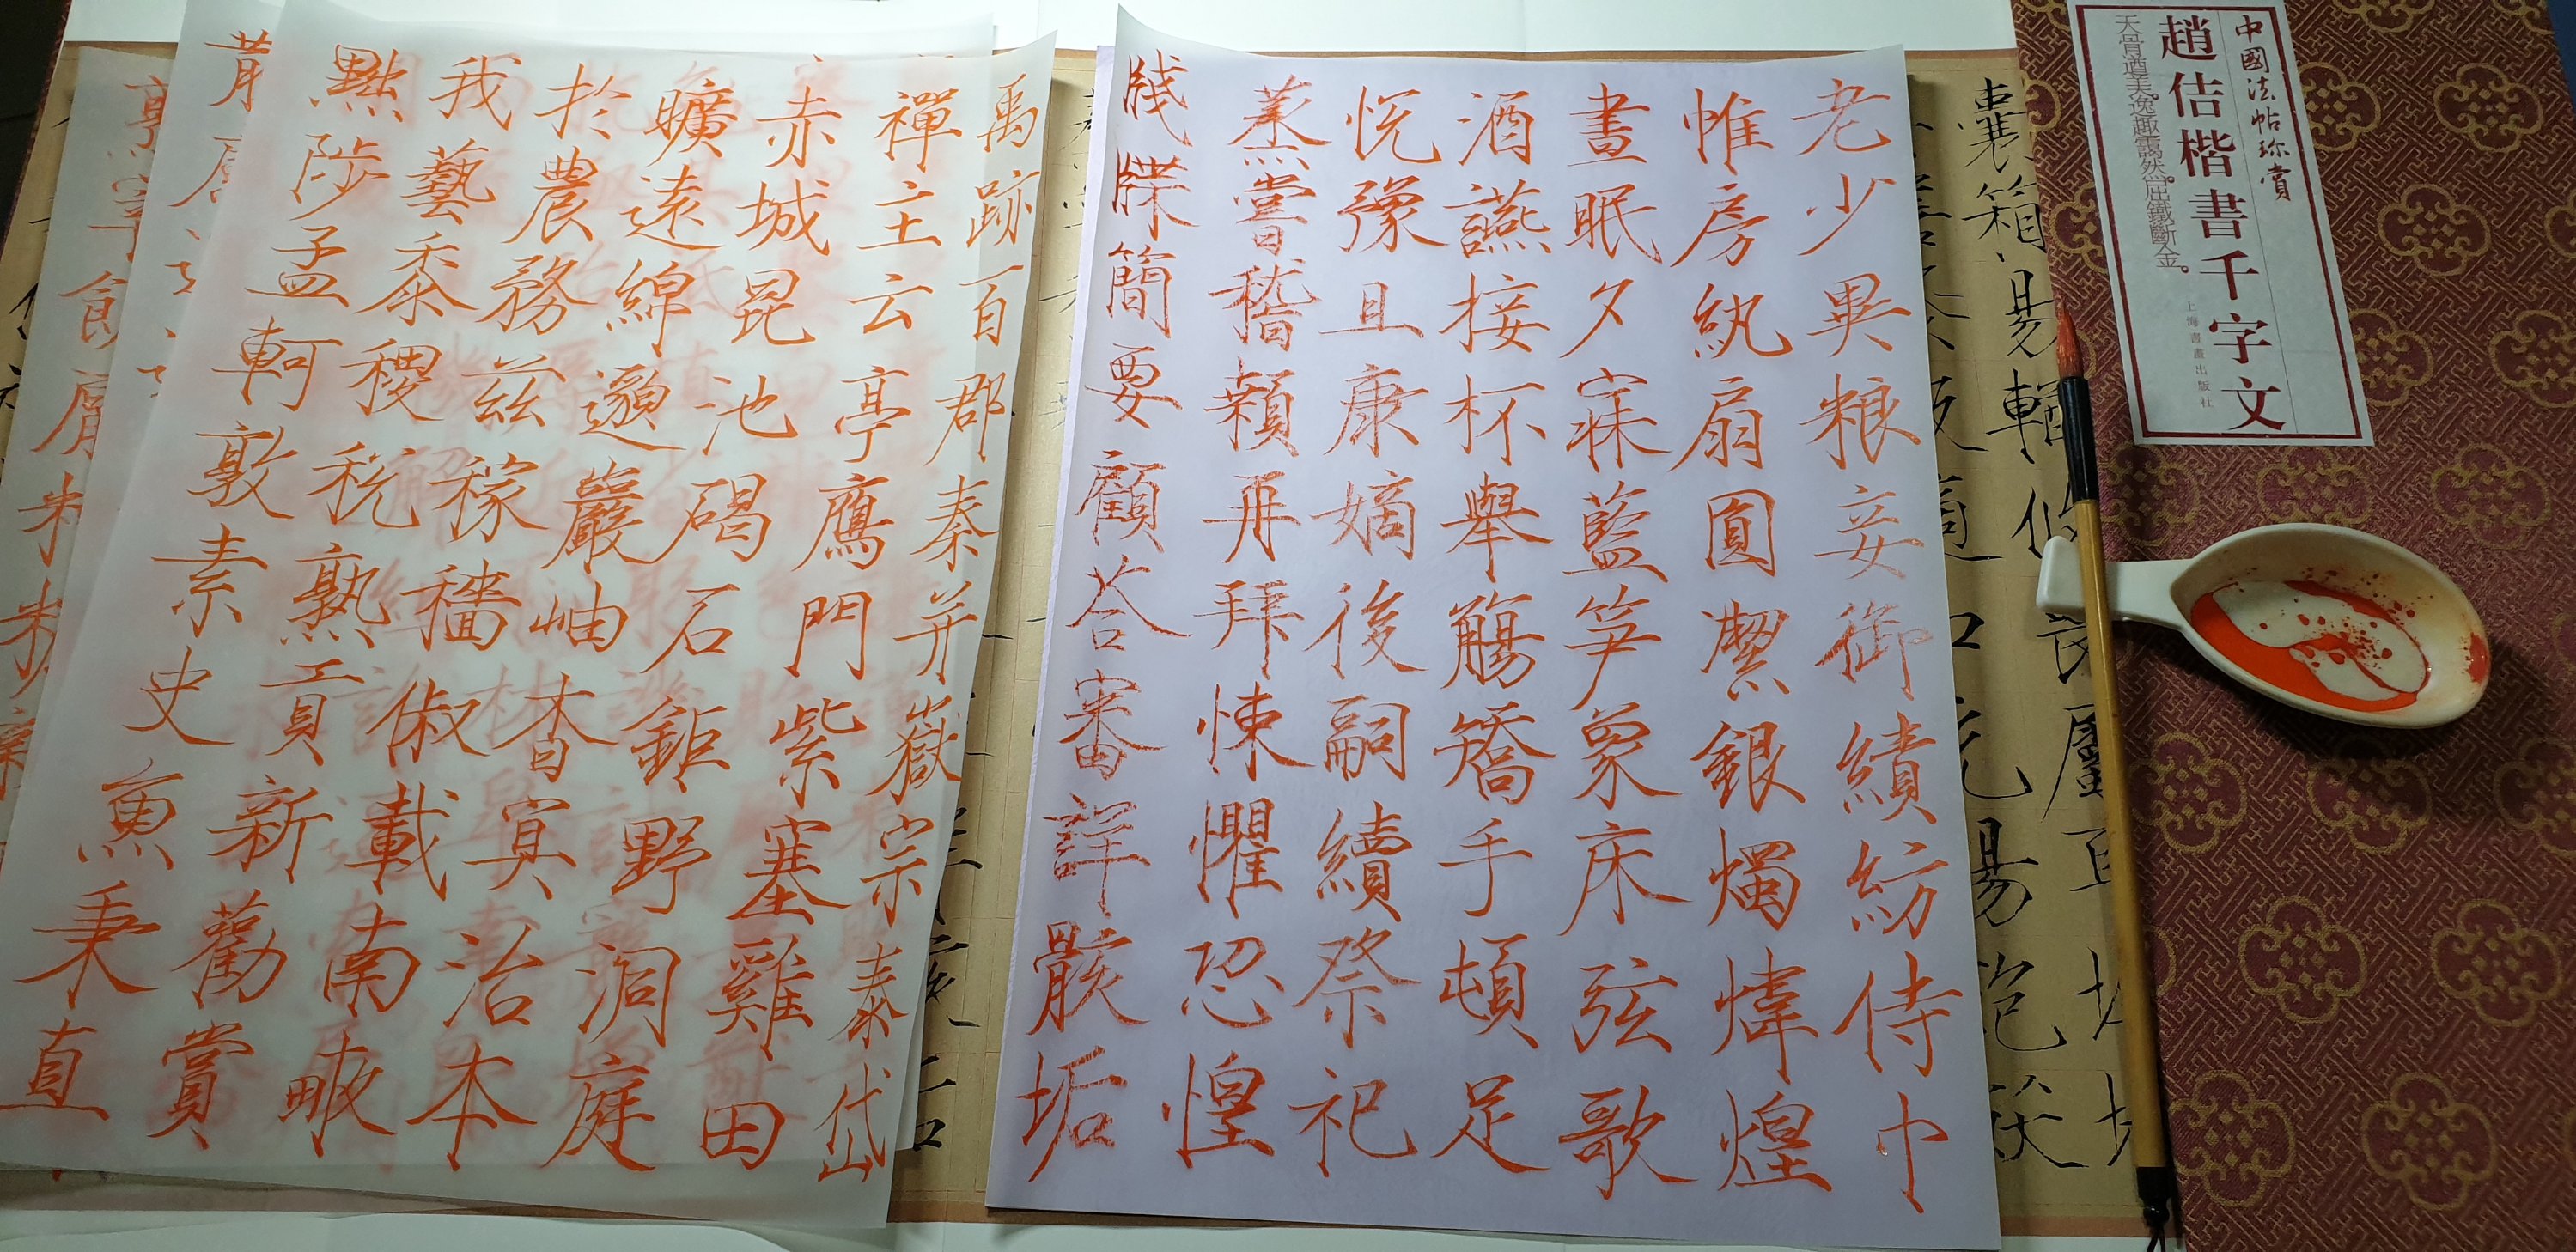 中國法帖珍賞
趙佶楷書千字文
天骨遒美。逸趣靄然。屈鐵斷金。
上海書畫出版社
囊箱易輶
老少異粮妾御績紡侍巾
帷房紈扇圓潔銀燭煒煌
晝眠夕寐藍笋象床弦歌
酒讌接杯舉觴矯手頓足
悦豫且康嫡後嗣續祭祀
蒸嘗稽顙再拜悚懼恐惶
牋牒簡要顧荅審詳骸垢
禹跡百郡秦并嶽宗泰岱
禪主云亭鴈門紫塞雞田
赤城昆池碣石鉅野洞庭
曠遠綿邈巖岫杳冥治本
於農務茲稼穡俶載南畝
我藝黍稷稅熟貢新勸賞
黜陟孟軻敦素史魚秉直